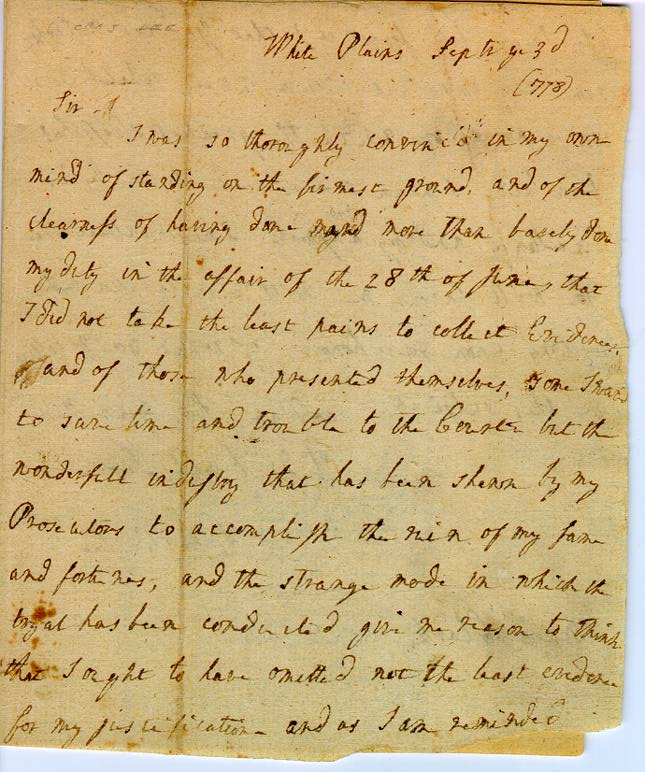 CHAS LEE
White Plains Septr ye 3d
(1778)
Sir -
I was so thoroughly convinc'd in my own
mind of standing on the firmest ground, and of the
clearness of having done much more than barely done
my duty in the affair of the 28th of June, that
I did not take the least pains to collect Evidences,
and of those who presented themselves, some I
to save time and trouble to the Court but the
wonderfull industry that has been shewn by my
Prosecutors to accomplish the ruin of my fame
and fortunes, and the strange mode in which the
tryal has been conducted give me reason to think
that I ought to have omitted not the least evidence
for my justification and as I am reminded